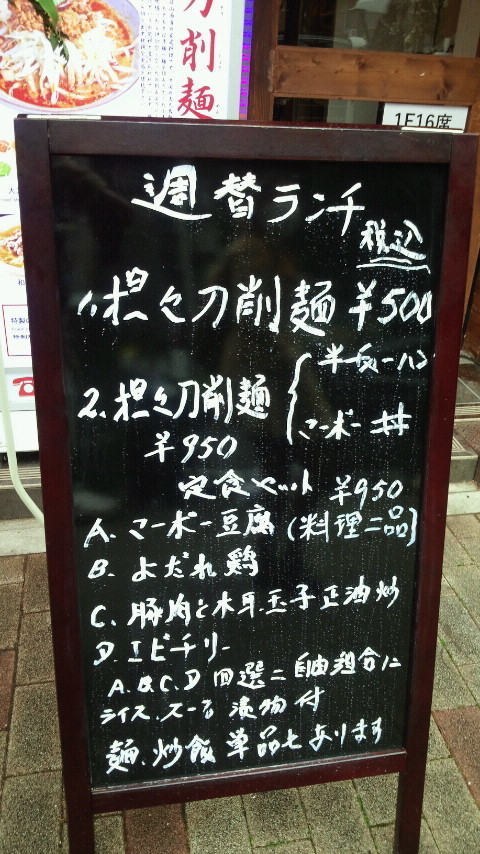 刀削麺
1F16席
週替ランチ
税込
1.担々刀削麺 ¥500
2.担々刀削麺 半炒ーハン
マーボー丼
¥950
定食セット ¥950
A. マーボー豆腐 (料理二品)
B. よだれ鶏
C. 豚肉と木耳玉子正油炒
D. エビチリー
A.B.C.D 四選二自由組合に
ライス.スープ 漬物付
麺.炒飯 単品もあります